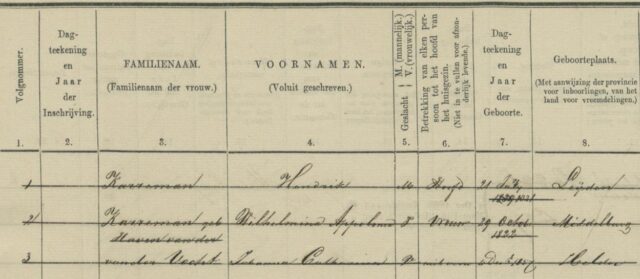 Volgnommer.
Dag-
teekening
en
Jaar
der
Inschrijving.
FAMILIENAAM.
(Familienaam der vrouw.)
VOORNAMEN.
(Voluit geschreven.)
Geslacht M. (mannelijk.)
V. (vrouwelijk.)
Betrekking van elken per-
soon tot het hoofd van
het huisgezin.
(Niet in te vullen voor afzon-
derlijk levende.)
Dag-
teekening
en
Jaar
der
Geboorte.
Geboorteplaats.
(Met aanwijzing der provincie
voor inboorlingen, van het
land voor vreemdelingen.)
1. 2. 3. 4. 5. 6. 7. 8.
1 Karreman Hendrik M Hoofd 21 July 1821 Leyden
2 Karreman geb Wilhelmina Appolonia V Vrouw 29 Octob 1822 Middelburg
3 van der Vocht Johanna Catharina Helder